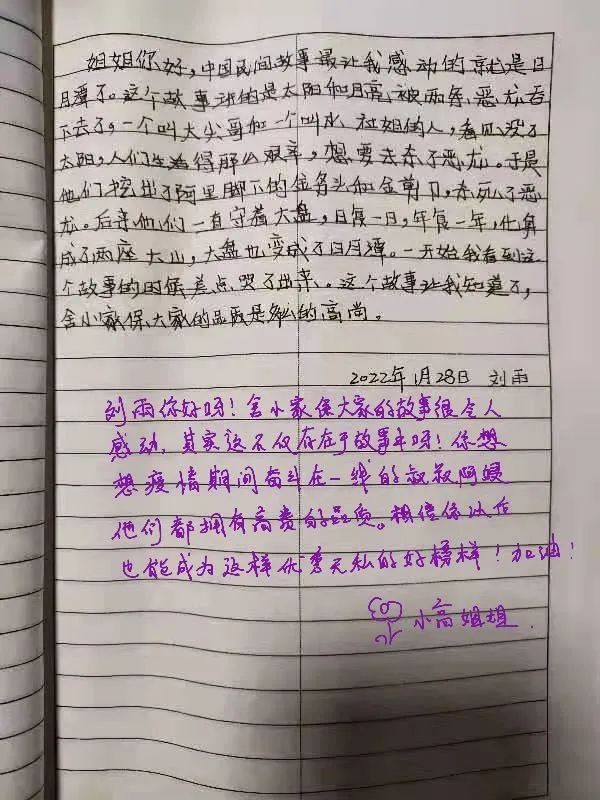 姐姐你好,中国民间故事最让我感动的就是日
月潭了。这个故事讲的是太阳和月亮被两条恶龙吞
下去了,一个叫大尖哥和一个叫水社姐的人,看见没了
太阳,人们生活得那么艰辛,想要去杀了恶龙。于是
他们挖出了阿里脚下的金斧头和金剪刀,杀死了恶
龙。后来他们一直守着大盘,日复一日,年复一年,化身
成了两座大山,大盘也变成了日月潭。一开始我看到这
个故事的时候差点哭了出来。这个故事让我知道了,
舍小家保大家的品质是多么的高尚。
2022年1月28日 刘雨
刘雨你好呀!舍小家保大家的故事很令人
感动,其实这不仅存在于故事中呀!你想
想疫情期间奋斗在一线的叔叔阿姨
他们都拥有高贵的品质。相信你以后
也能成为这样优秀无私的好榜样!加油!
小高姐姐.